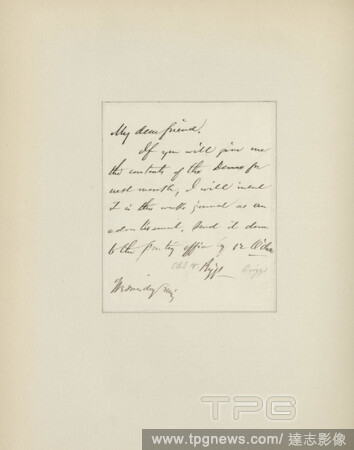 My dear friend.
If you will give me
the contents of the Demo for
next month, I will insert
it in this weeks journal as an
advertisement. Send it down
to the printing office by 12 O'clk
Briggs
Wednesday
TPG
www.tpgnews.com/達志影像